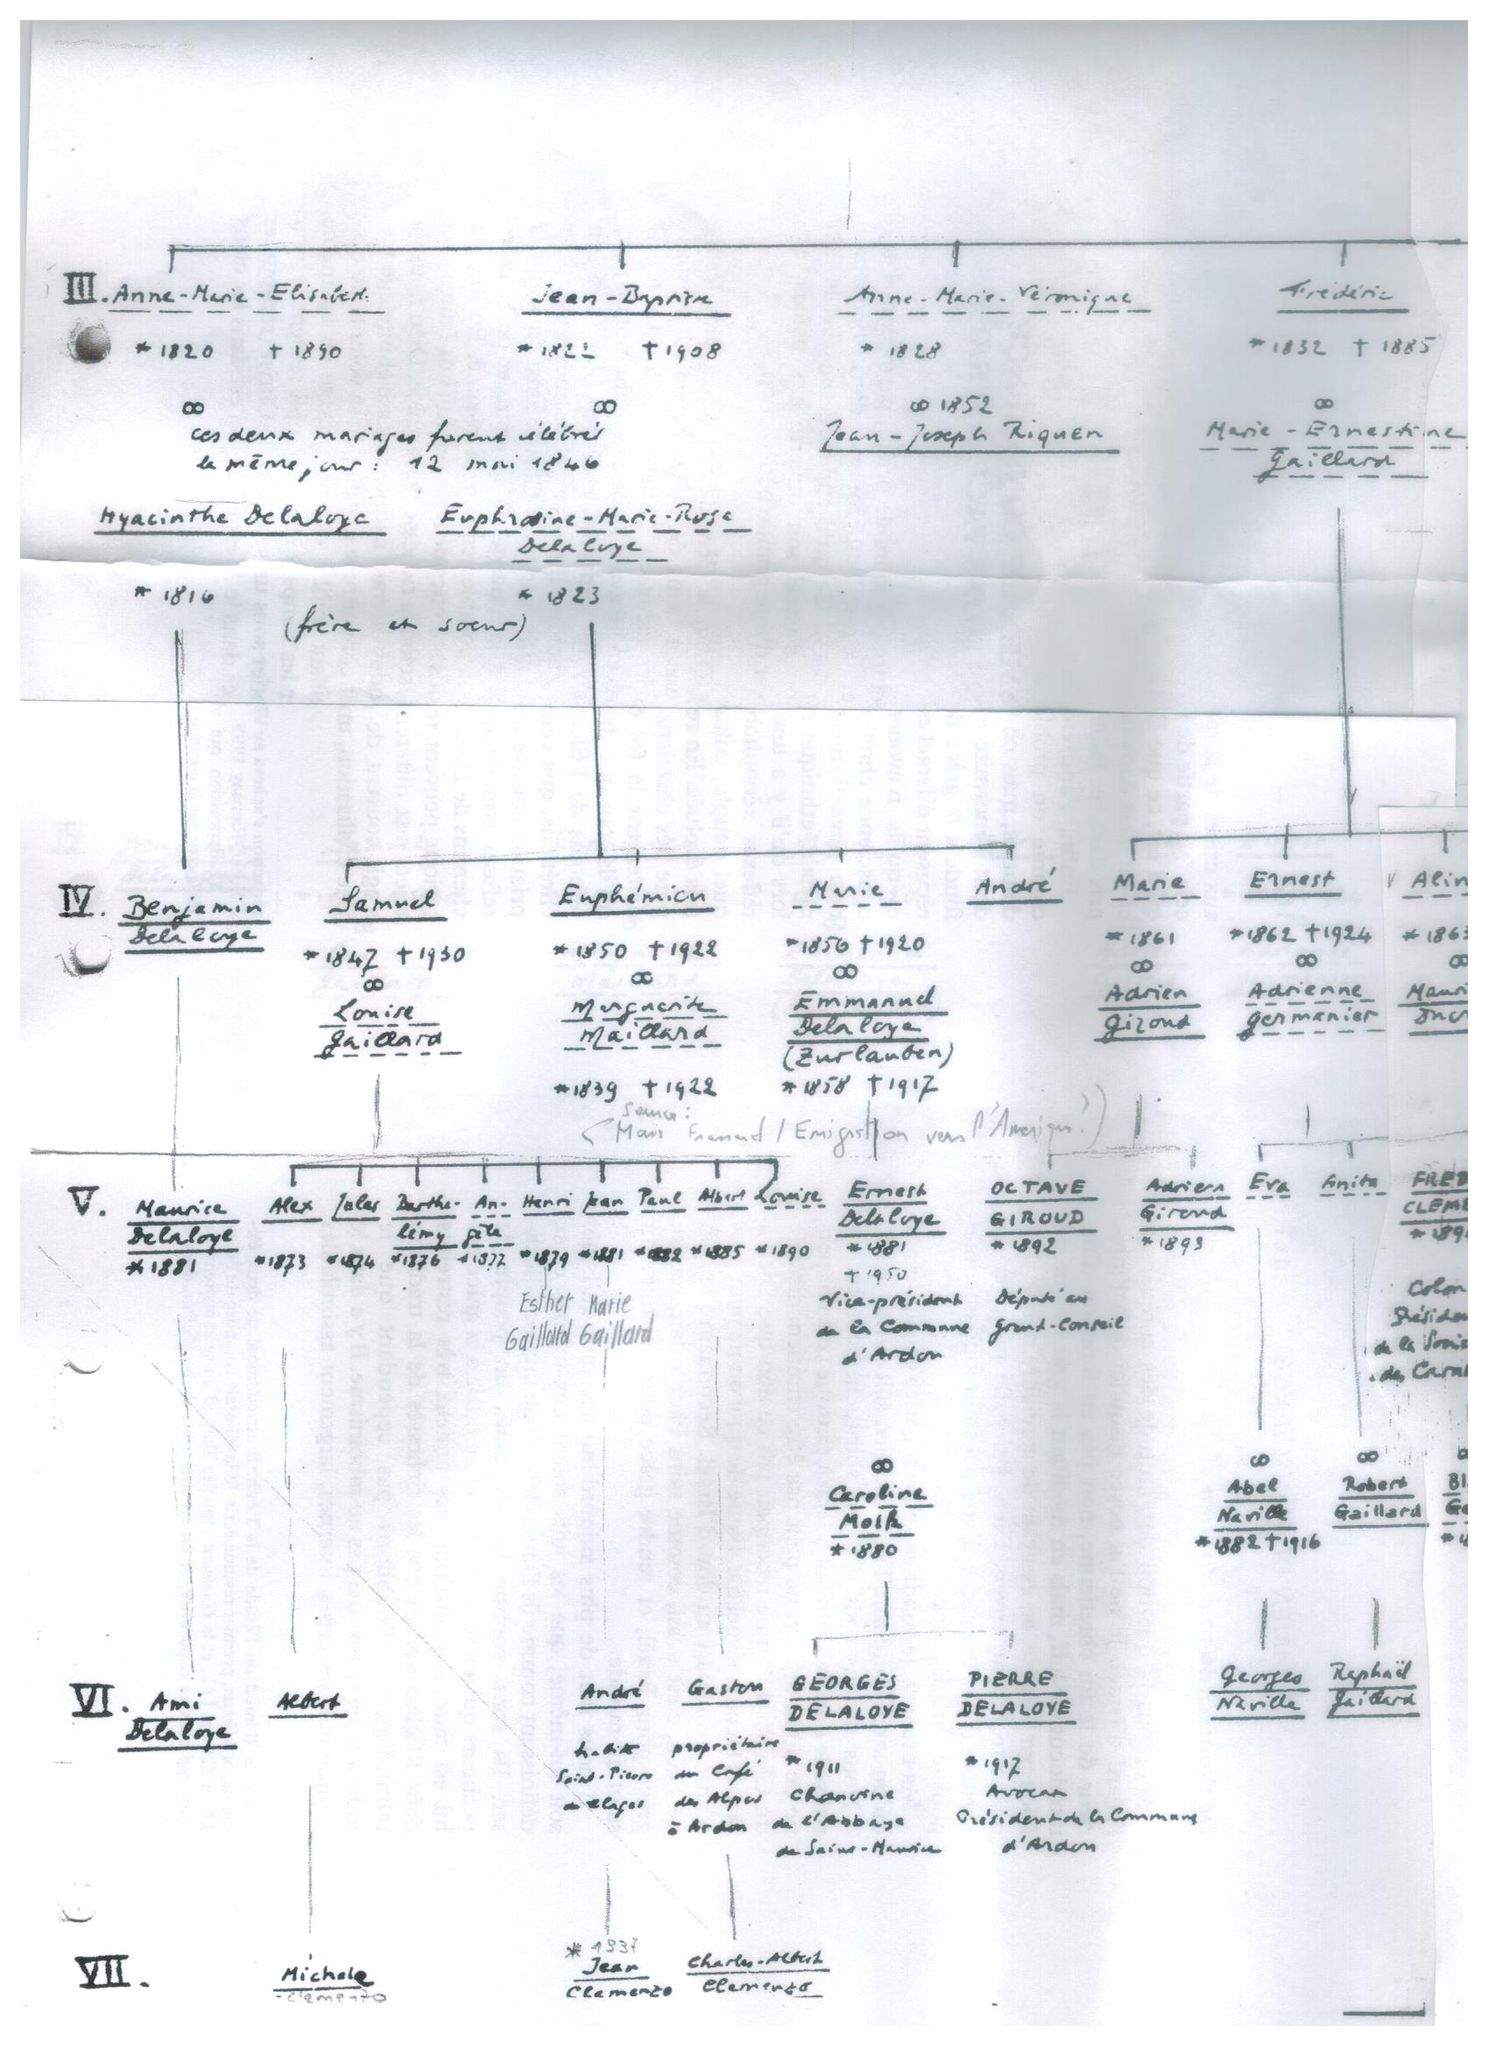 III. Anne-Marie-Elisabeth
* 1820 † 1890
∞
Jean-Baptiste
* 1822 † 1908
∞
ces deux mariages furent célébrés
le même jour: 12 mai 1846
Hyacinthe Delaloye
* 1816
Euphrosine-Marie-Rose
Delaloye
* 1823
(frère et soeur)
Anne-Marie-Véronique
* 1828
∞ 1852
Jean-Joseph Riquen
Frédéric
* 1832 † 1885
∞
Marie-Ernestine
Gaillard
IV. Benjamin
Delaloye
Samuel
* 1847 † 1930
∞
Louise
Gaillard
Euphémien
* 1850 † 1922
∞
Marguerite
Maillard
* 1839 † 1922
Marie
* 1856 † 1920
∞
Emmanuel
Delaloye
(Zurlauben)
* 1858 † 1917
André
Marie
* 1861
∞
Adrien
Giroud
Ernest
* 1862 † 1924
∞
Adrienne
Germanier
Alin
* 1863
∞
Mauri
Source:
/ Emigration vers l'Amérique?)
V. Maurice
Delaloye
* 1881
Alex
* 1873
Jules
* 1874
Barthé-
lémy
* 1876
An-
gèle
* 1877
Henri
* 1879
Esther
Gaillard
Jean
* 1881
Marie
Gaillard
Paul
* 1882
Albert
* 1885
Louise
* 1890
Ernest
Delaloye
* 1881
† 1950
Vice-président
de la Commune
d'Ardon
∞
Caroline
* 1880
OCTAVE
GIROUD
* 1892
Député au
Grand-Conseil
Adrien
Giroud
* 1893
Eva
∞
Abel
Naville
* 1882 † 1916
Anita
∞
Robert
Gaillard
FRED
CLEME
* 189
Colon
Présiden
de la Socié
des Carab
∞
Bl
Ge
* 18
VI. Ami
Delaloye
Albert
André
habite
Saint-Pierre
de Clages
Gaston
propriétaire
du Café
des Alpes
à Ardon
GEORGES
DELALOYE
* 1911
Chanoine
de l'Abbaye
de Saint-Maurice
PIERRE
DELALOYE
* 1917
Avocat
Président de la Commune
d'Ardon
Georges
Naville
Raphaël
Gaillard
VII. Michele
Clemenzo
* 1937
Jean
Clemenzo
Charles-Albert
Clemenzo